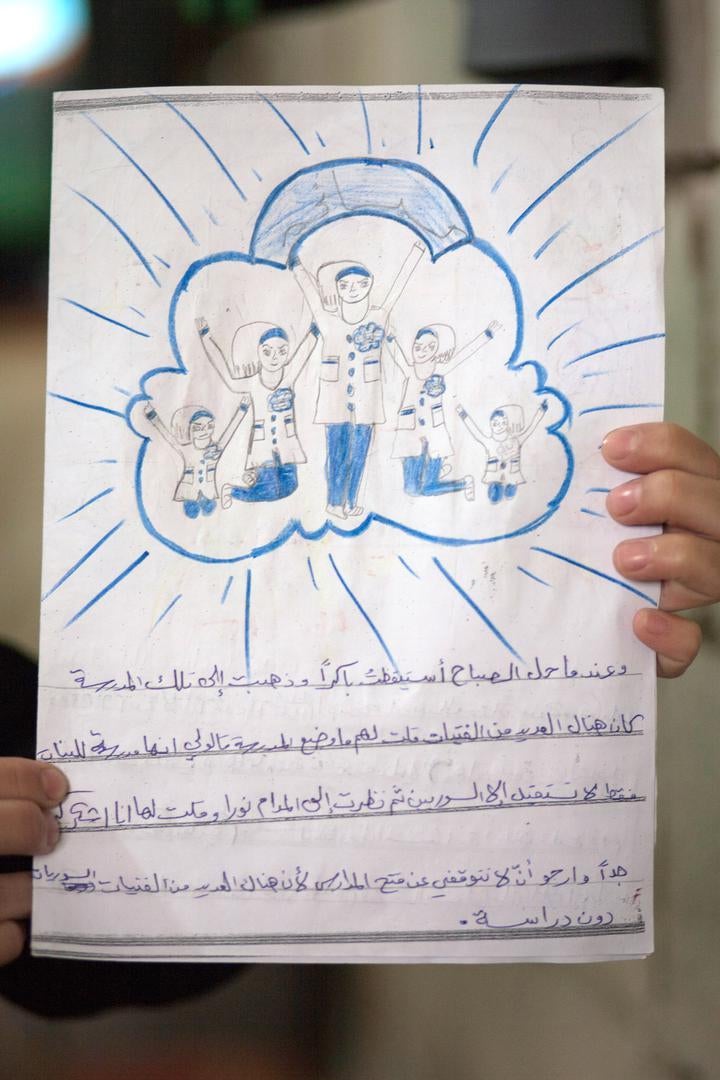 وعندما حل الصباح أستيقظتُ باكراً وذهبت إلى تلك المدرسة
كان هنالك العديد من الفتيات قلت لهم ما وضع المدرسة قالولي انها مدرسة للبنات
فقط لا تستقبل إلا السوريين ثم نظرت إلى المدام نورا وقلت لها انا اشكرك
جداً وارجو أنّ لا تتوقفي عن فتح المدارس لأن هنالك العديد من الفتيات السوريات
دون دراسة .